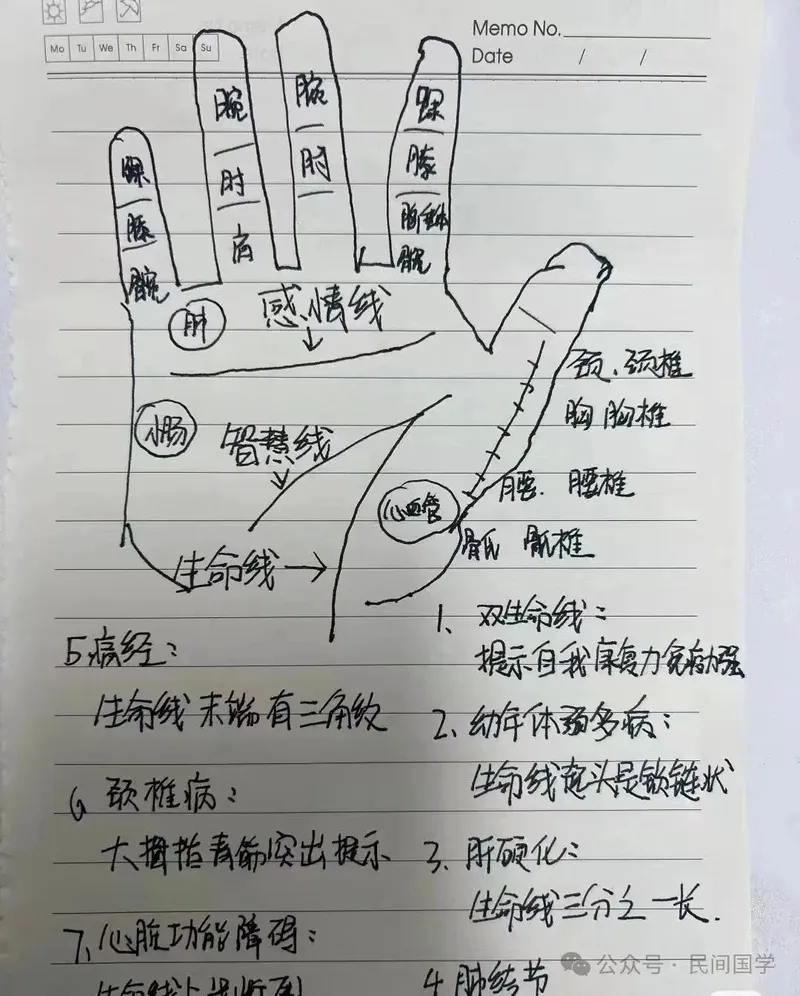 Memo No.
Mo Tu We Th Fr Sa Su
Date / /
踝
膝
髋
腕
肘
肩
腕
肘
踝
膝
髋
肺
感情线
小肠
智慧线
心血管
生命线
颈、颈椎
胸 胸椎
腰、腰椎
骶 骶椎
1、双生命线：
提示自我康复力免疫力强
2、幼年体弱多病：
生命线起头是锁链状
3、肝硬化：
生命线三分之一长.
4、肺结节
5、痛经：
生命线末端有三角纹
6 颈椎病：
大拇指青筋突出提示
7、心脏功能障碍：
公众号·民间国学